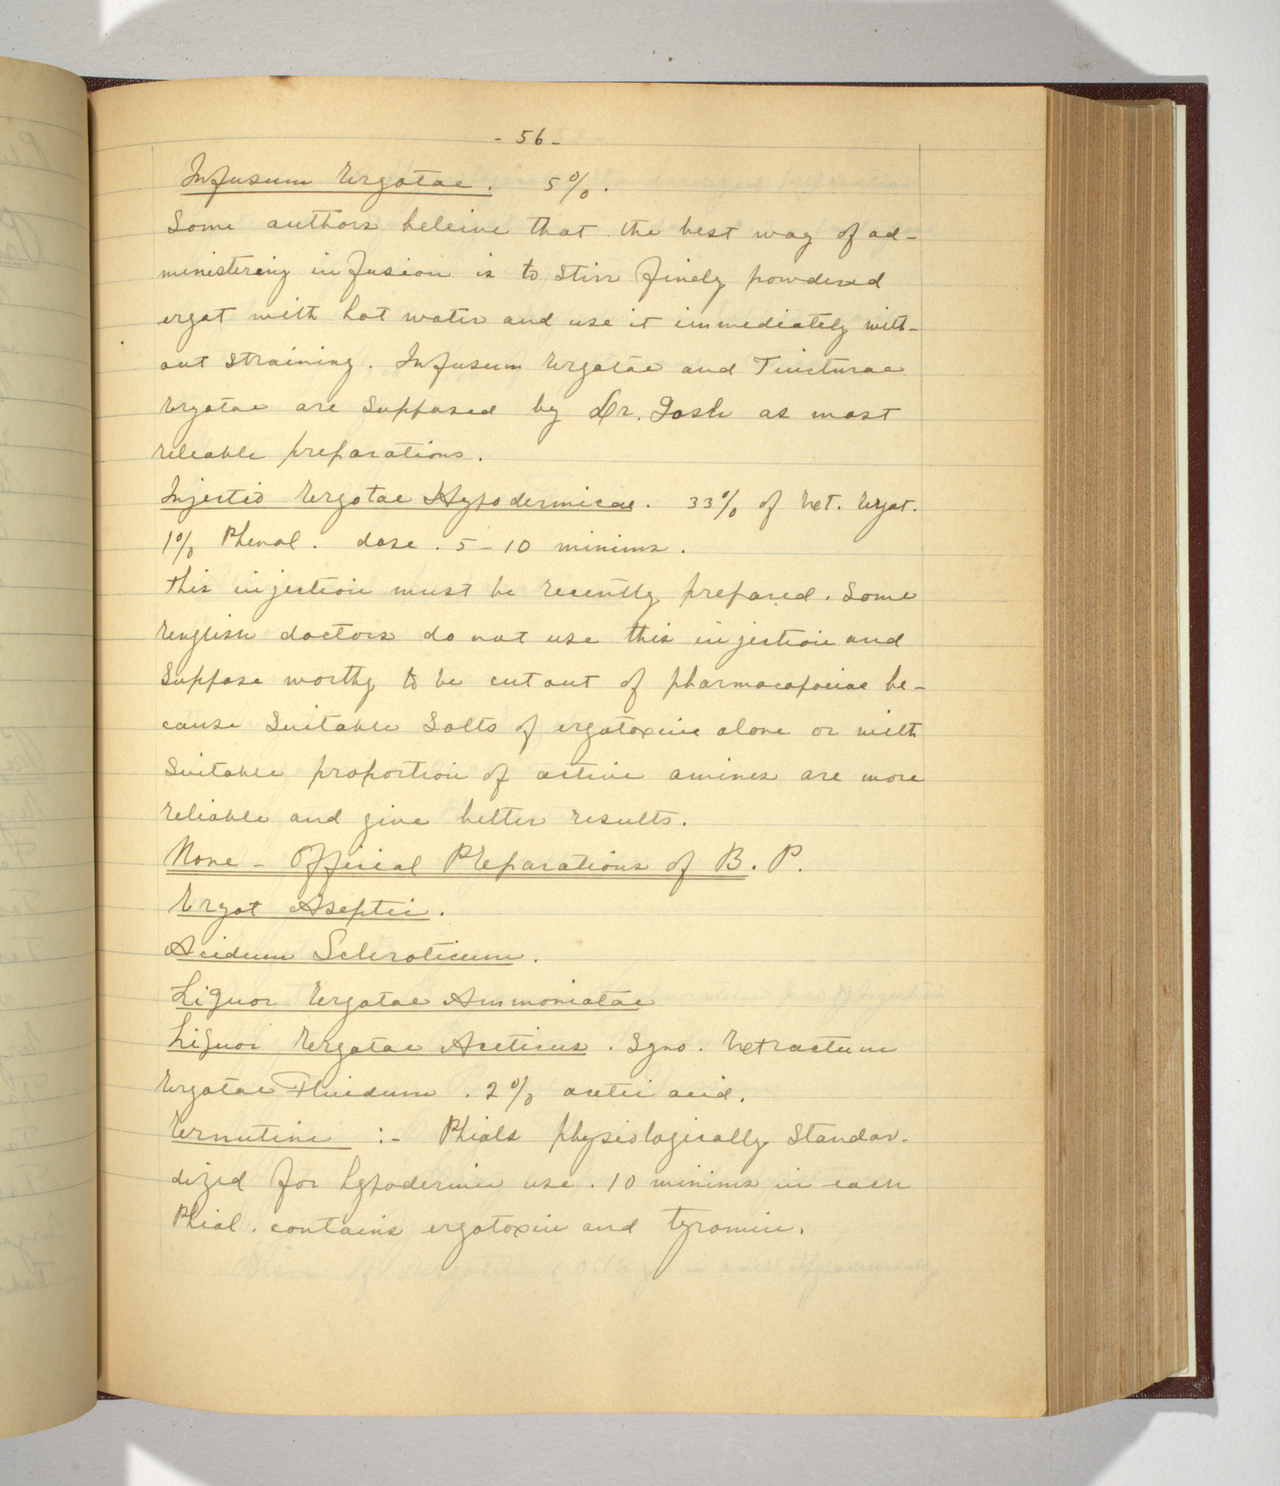 - 56 -
Infusum Ergotae. 5%.
Some authors beleive that the best way of ad-
ministering infusion is to stirr finely powdered
ergot with hot water and use it immediately with-
out straining. Infusum Ergotae and Tincturae
Ergotae are supposed by Dr. Gosh as most
reliable preparations.
Injectio Ergotae Hypodermicae. 33% of Ext. Ergot.
1% Phenol. dose. 5-10 minims.
This injection must be recently prepared. Some
English doctors do not use this injection and
suppose worthy to be cut out of pharmacopoeiae be-
cause suitable salts of ergotoxine alone or with
suitable proportion of active amines are more
reliable and give better results.
None - Official Preparations of B. P.
Ergot Aseptic.
Acidum Scleroticum.
Liquor Ergotae Ammoniatae
Liquor Ergotae Aceticus. Syno. Extractum
Ergotae Fluidum. 2% acetic acid.
Ernutine :- Phials physiologically standar-
dized for hypodermic use. 10 minims in each
Phial. contains ergotoxin and tyromin.